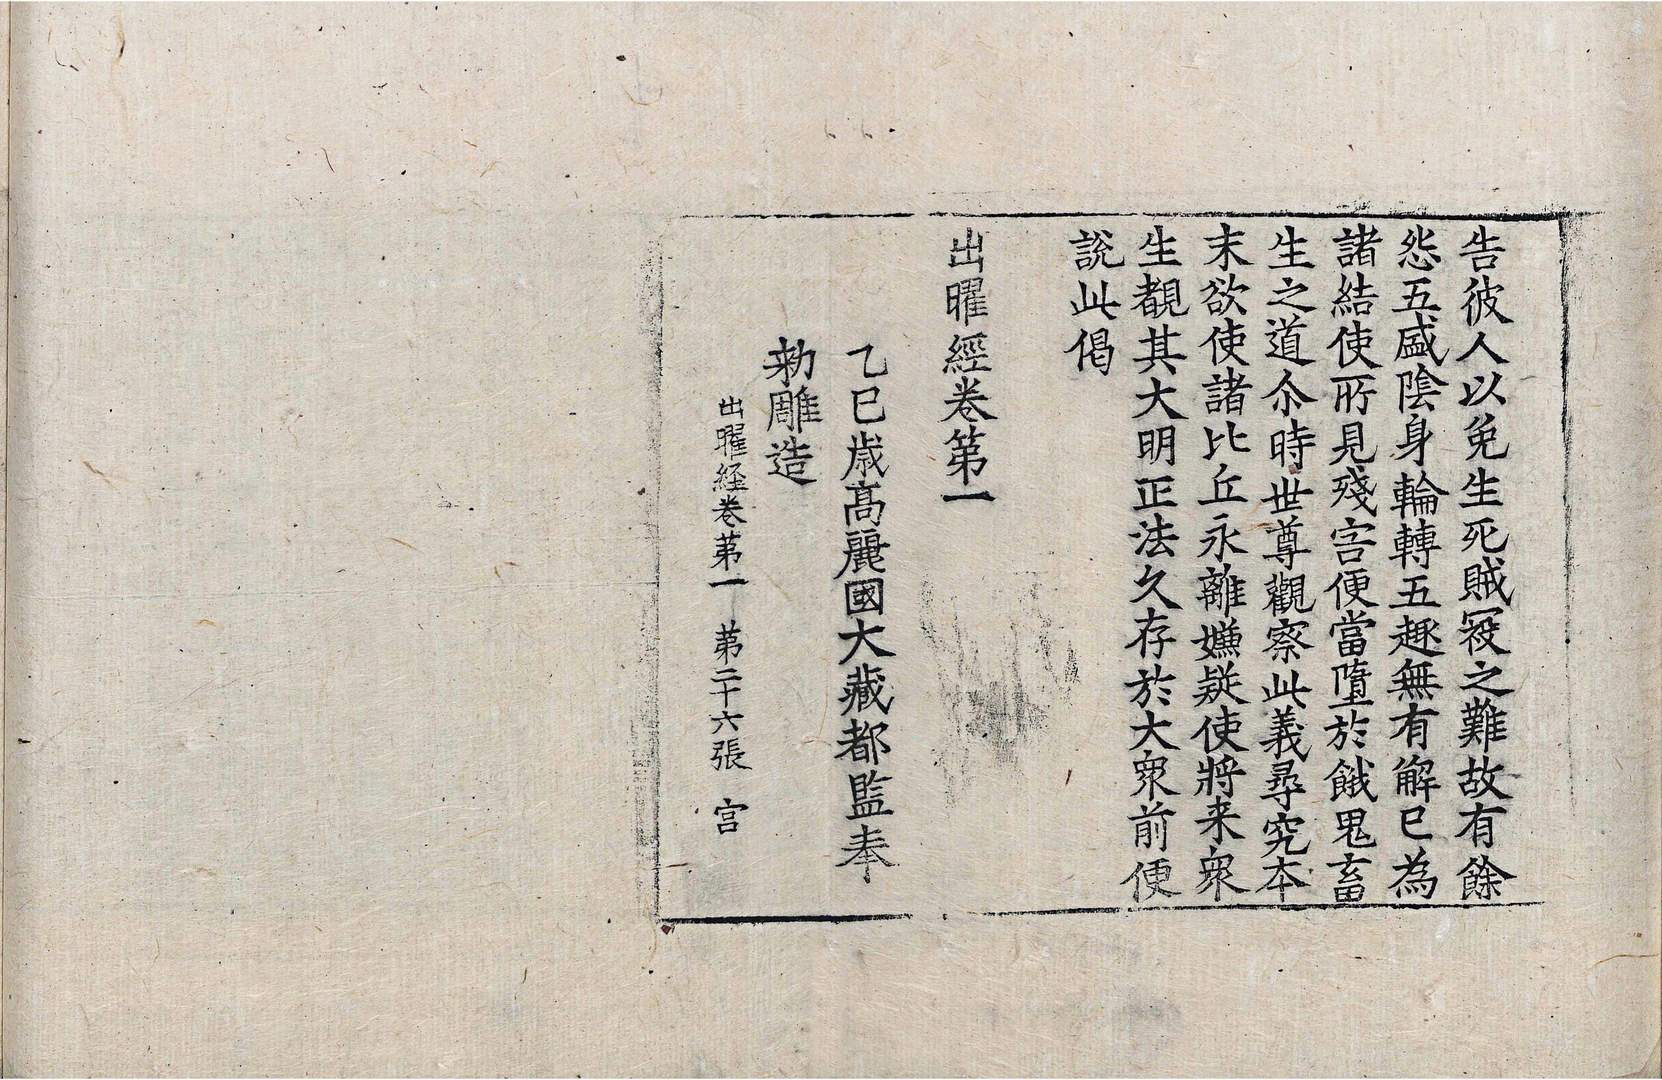 告彼人以免生死賊冦之難故有餘
怨五盛陰身輪轉五趣無有解已為
諸結使所見殘害便當墮於餓鬼畜
生之道尒時世尊觀察此義尋究本
末欲使諸比丘永離嫌疑使將来衆
生覩其大明正法久存於大衆前便
說此偈
出曜經卷第一
乙巳歲高麗國大藏都監奉
勑雕造
出曜経卷第一 第二十六張 宫